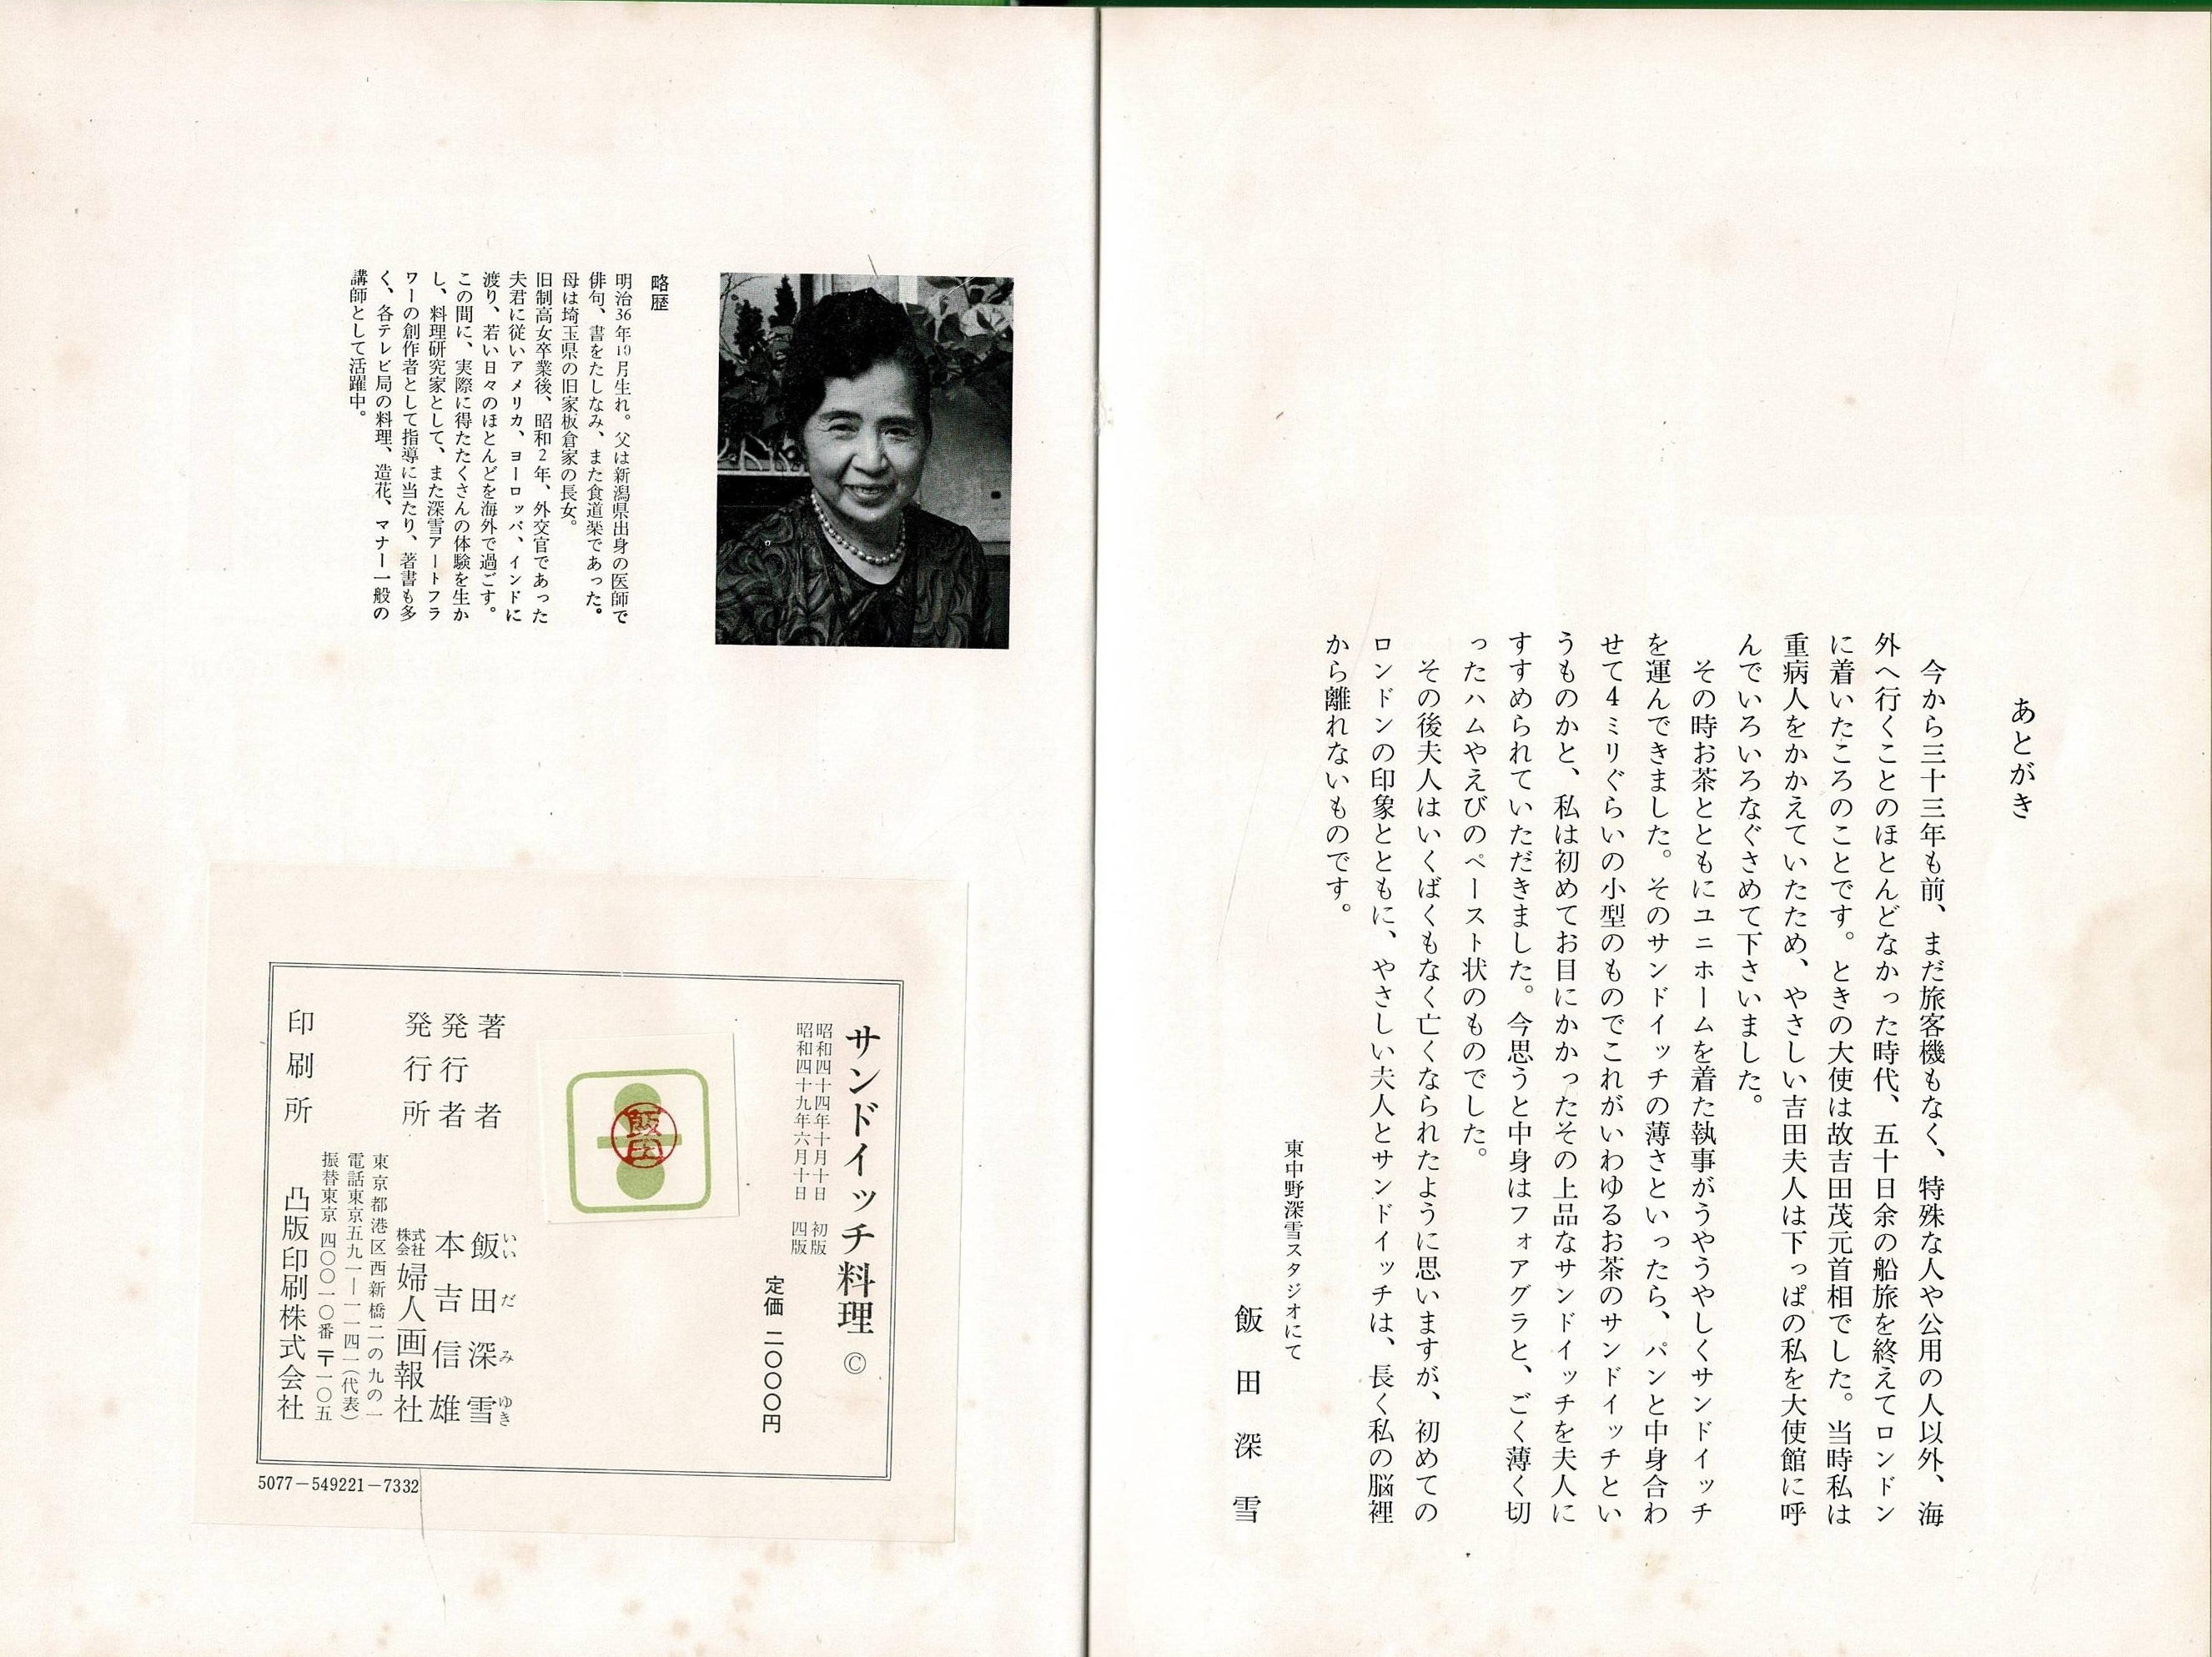 あとがき
　今から三十三年も前、まだ旅客機もなく、特殊な人や公用の人以外、海
外へ行くことのほとんどなかった時代、五十日余の船旅を終えてロンドン
に着いたころのことです。ときの大使は故吉田茂元首相でした。当時私は
重病人をかかえていたため、やさしい吉田夫人は下っぱの私を大使館に呼
んでいろいろなぐさめて下さいました。
　その時お茶とともにユニホームを着た執事がうやうやしくサンドイッチ
を運んできました。そのサンドイッチの薄さといったら、パンと中身合わ
せて4ミリぐらいの小型のものでこれがいわゆるお茶のサンドイッチとい
うものかと、私は初めてお目にかかったその上品なサンドイッチを夫人に
すすめられていただきました。今思うと中身はフォアグラと、ごく薄く切
ったハムやえびのペースト状のものでした。
　その後夫人はいくばくもなく亡くなられたように思いますが、初めての
ロンドンの印象とともに、やさしい夫人とサンドイッチは、長く私の脳裡
から離れないものです。
東中野深雪スタジオにて
飯田深雪
略歴
明治36年10月生れ。父は新潟県出身の医師で
俳句、書をたしなみ、また食道楽であった。
母は埼玉県の旧家板倉家の長女。
旧制高女卒業後、昭和2年、外交官であった
夫君に従いアメリカ、ヨーロッパ、インドに
渡り、若い日々のほとんどを海外で過ごす。
この間に、実際に得たたくさんの体験を生か
し、料理研究家として、また深雪アートフラ
ワーの創作者として指導に当たり、著書も多
く、各テレビ局の料理、造花、マナー一般の
講師として活躍中。
サンドイッチ料理 ©
昭和四十四年十月十日　初版
昭和四十九年六月十日　四版
定価 二〇〇〇円
飯田
著者　飯田深雪
いいだみゆき
発行者　本吉信雄
発行所　株式会社 婦人画報社
東京都港区西新橋二の九の一
電話東京五九一―一一四一(代表)
振替東京 四〇〇一〇番 〒一〇五
印刷所　凸版印刷株式会社
5077－549221－7332